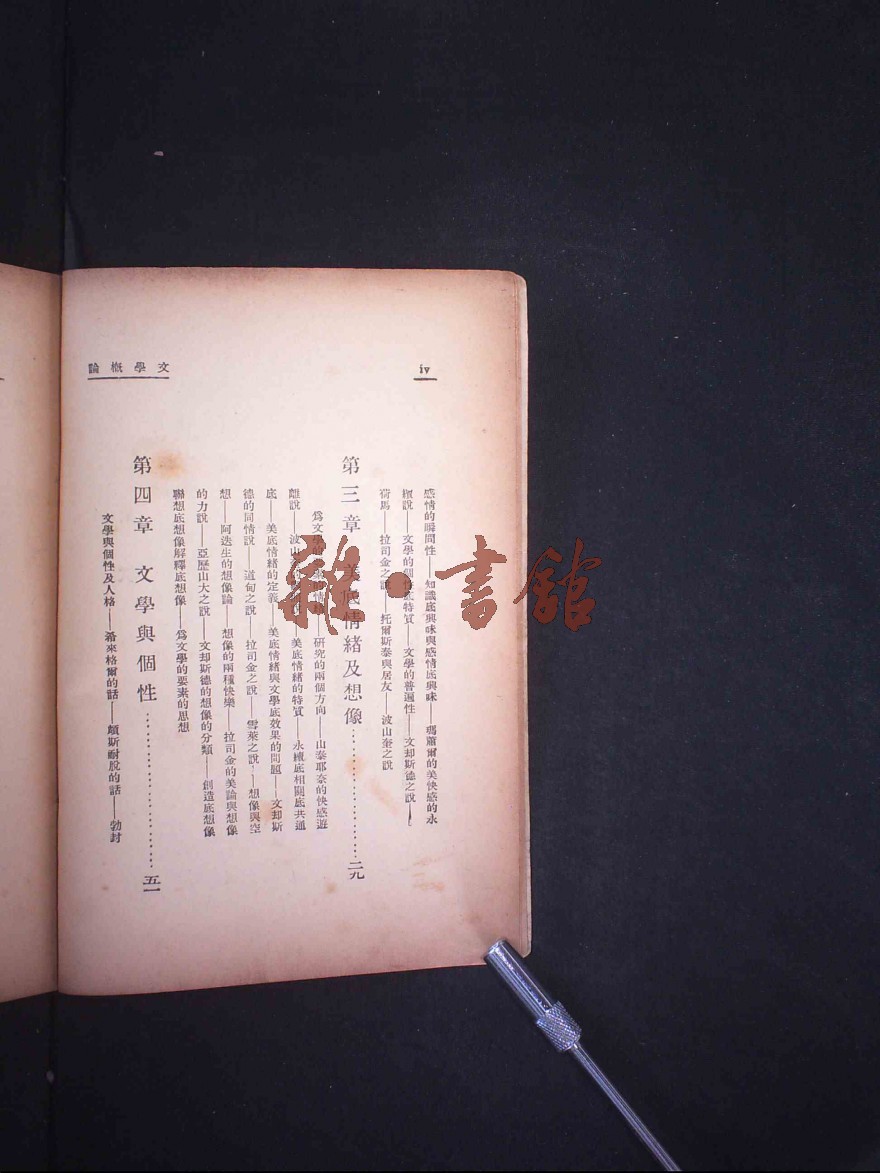 文學概論
iv
感情的瞬間性——知識底興味與感情底興味——瑪蕭爾的美快感的永
續說——文學的個性底特質——文學的普遍性——文却斯德之說——
荷馬——拉司金之說——托爾斯泰與居友——波山奎之說
第三章 美底情緒及想像 二九
爲文學的 研究的兩個方向——山泰耶奈的快感遊
離說——波山 美底情緒的特質——永續底相關底共通
底——美底情緒的定義——美底情緒與文學底效果的問題——文却斯
德的同情說——道甸之說——拉司金之說——雪萊之說——想像與空
想——阿迭生的想像論——想像的兩種快樂——拉司金的美論與想像
的力說——亞歷山大之說——文却斯德的想像的分類——創造底想像
聯想底想像解釋底想像——爲文學的要素的思想
第四章 文學與個性 五一
文學與個性及人格——希來格爾的話——頗斯耐脫的話——勃封
雜·書館